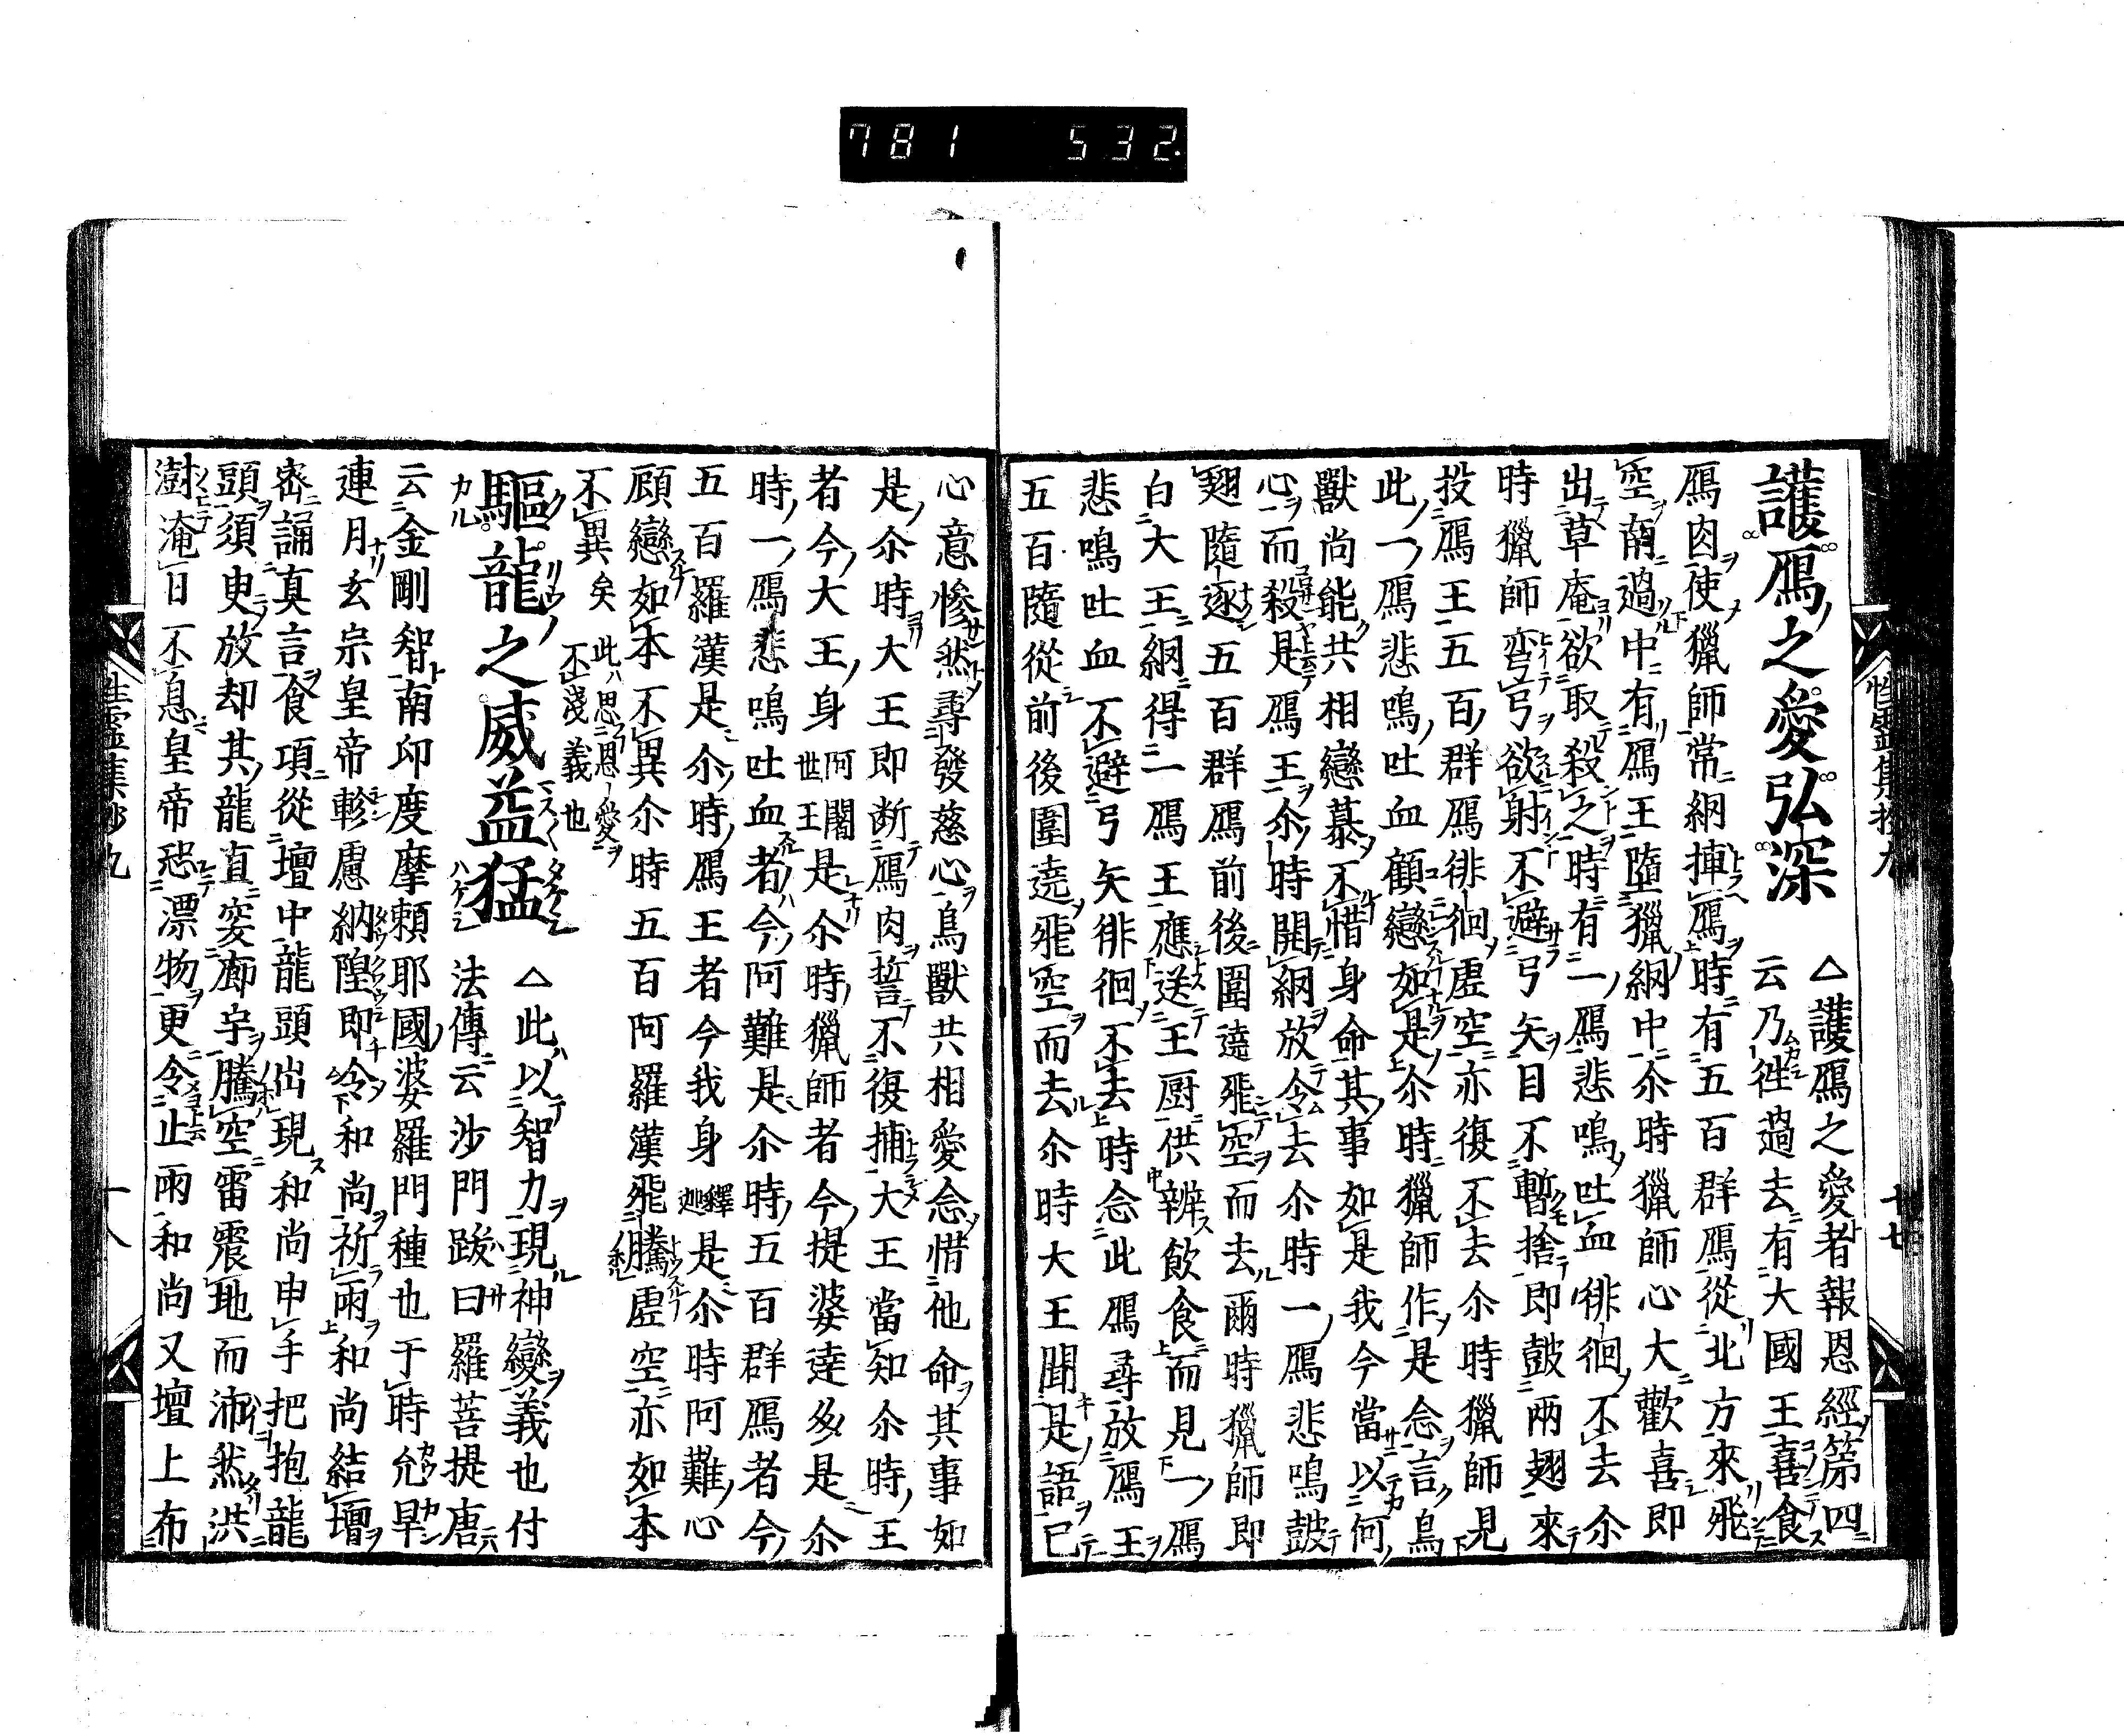 781 532.
護鴈之愛弘深
△護鴈之愛者報恩經第四
云乃徃過去有大國王喜食
鴈肉使獵師常網捕鴈時有五百群鴈從北方來飛
空南過中有鴈王墮獵網中尒時獵師心大歡喜即
出草庵欲取殺之時有一鴈悲鳴吐血徘徊不去尒
時獵師弯弓欲射不避弓矢目不暫捨即鼓兩翅來
投鴈王五百群鴈徘徊虛空亦復不去尒時獵師見
此一鴈悲鳴吐血顧戀如是尒時獵師作是念言鳥
獸尚能共相戀慕不惜身命其事如是我今當以何
心而殺是鴈王尒時開網放令去尒時一鴈悲鳴鼓
翅隨逐五百群鴈前後圍遶飛空而去爾時獵師即
白大王網得一鴈王應送王厨供辨飲食而見一鴈
悲鳴吐血不避弓矢徘徊不去時念此鴈尋放鴈王
五百隨從前後圍遶飛空而去尒時大王聞是語已
十七
心意惨然尋發慈心鳥獸共相愛念惜他命其事如
是尒時大王即断鴈肉誓不復捕大王當知尒時王
者今大王身阿闍世王是尒時獵師者今提婆達多是尒
時一鴈悲鳴吐血者今阿難是尒時五百群鴈者今
五百羅漢是尒時鴈王者今我身釋迦是尒時阿難心
顧戀如本不異尒時五百阿羅漢飛騰虛空亦如本
不異矣 此ハ思フニ恩愛ヲ不淺義也
驅龍之威益猛
△此ハ以智力現神變義也付
法傳云沙門跋曰羅菩提唐
云金剛智南印度摩頼耶國婆羅門種也于時允旱
連月玄宗皇帝軫慮納隍即令和尚祈雨和尚結壇
密誦真言食項從壇中龍頭出現和尚申手把抱龍
頭須臾放却其龍直穿廊宇騰空雷震地而沛然洪
澍淹日不息皇帝恐漂物更令止雨和尚又壇上布
性靈集鈔九
十八